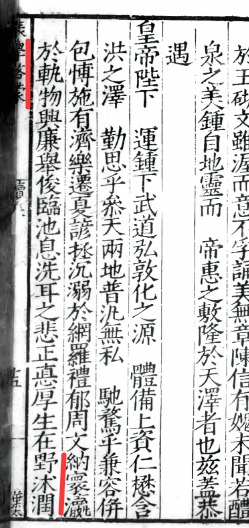 於玉砌文雖渥而意不孚諭美無章陳信有媿未聞若醴
泉之美鍾自地靈而 帝惠之敷隆於天澤者也茲蓋恭
遇
皇帝陛下 運鍾下武道弘敦化之源 體備上資仁懋含
洪之澤 勤思乎叅天兩地普汎無私 馳騖乎兼容併
包博施有濟樂遷夏諺拯沉溺於網羅禮郁周文納寰瀛
於軌物興廉舉俊臨池息洗耳之悲正悳厚生在野沐潤